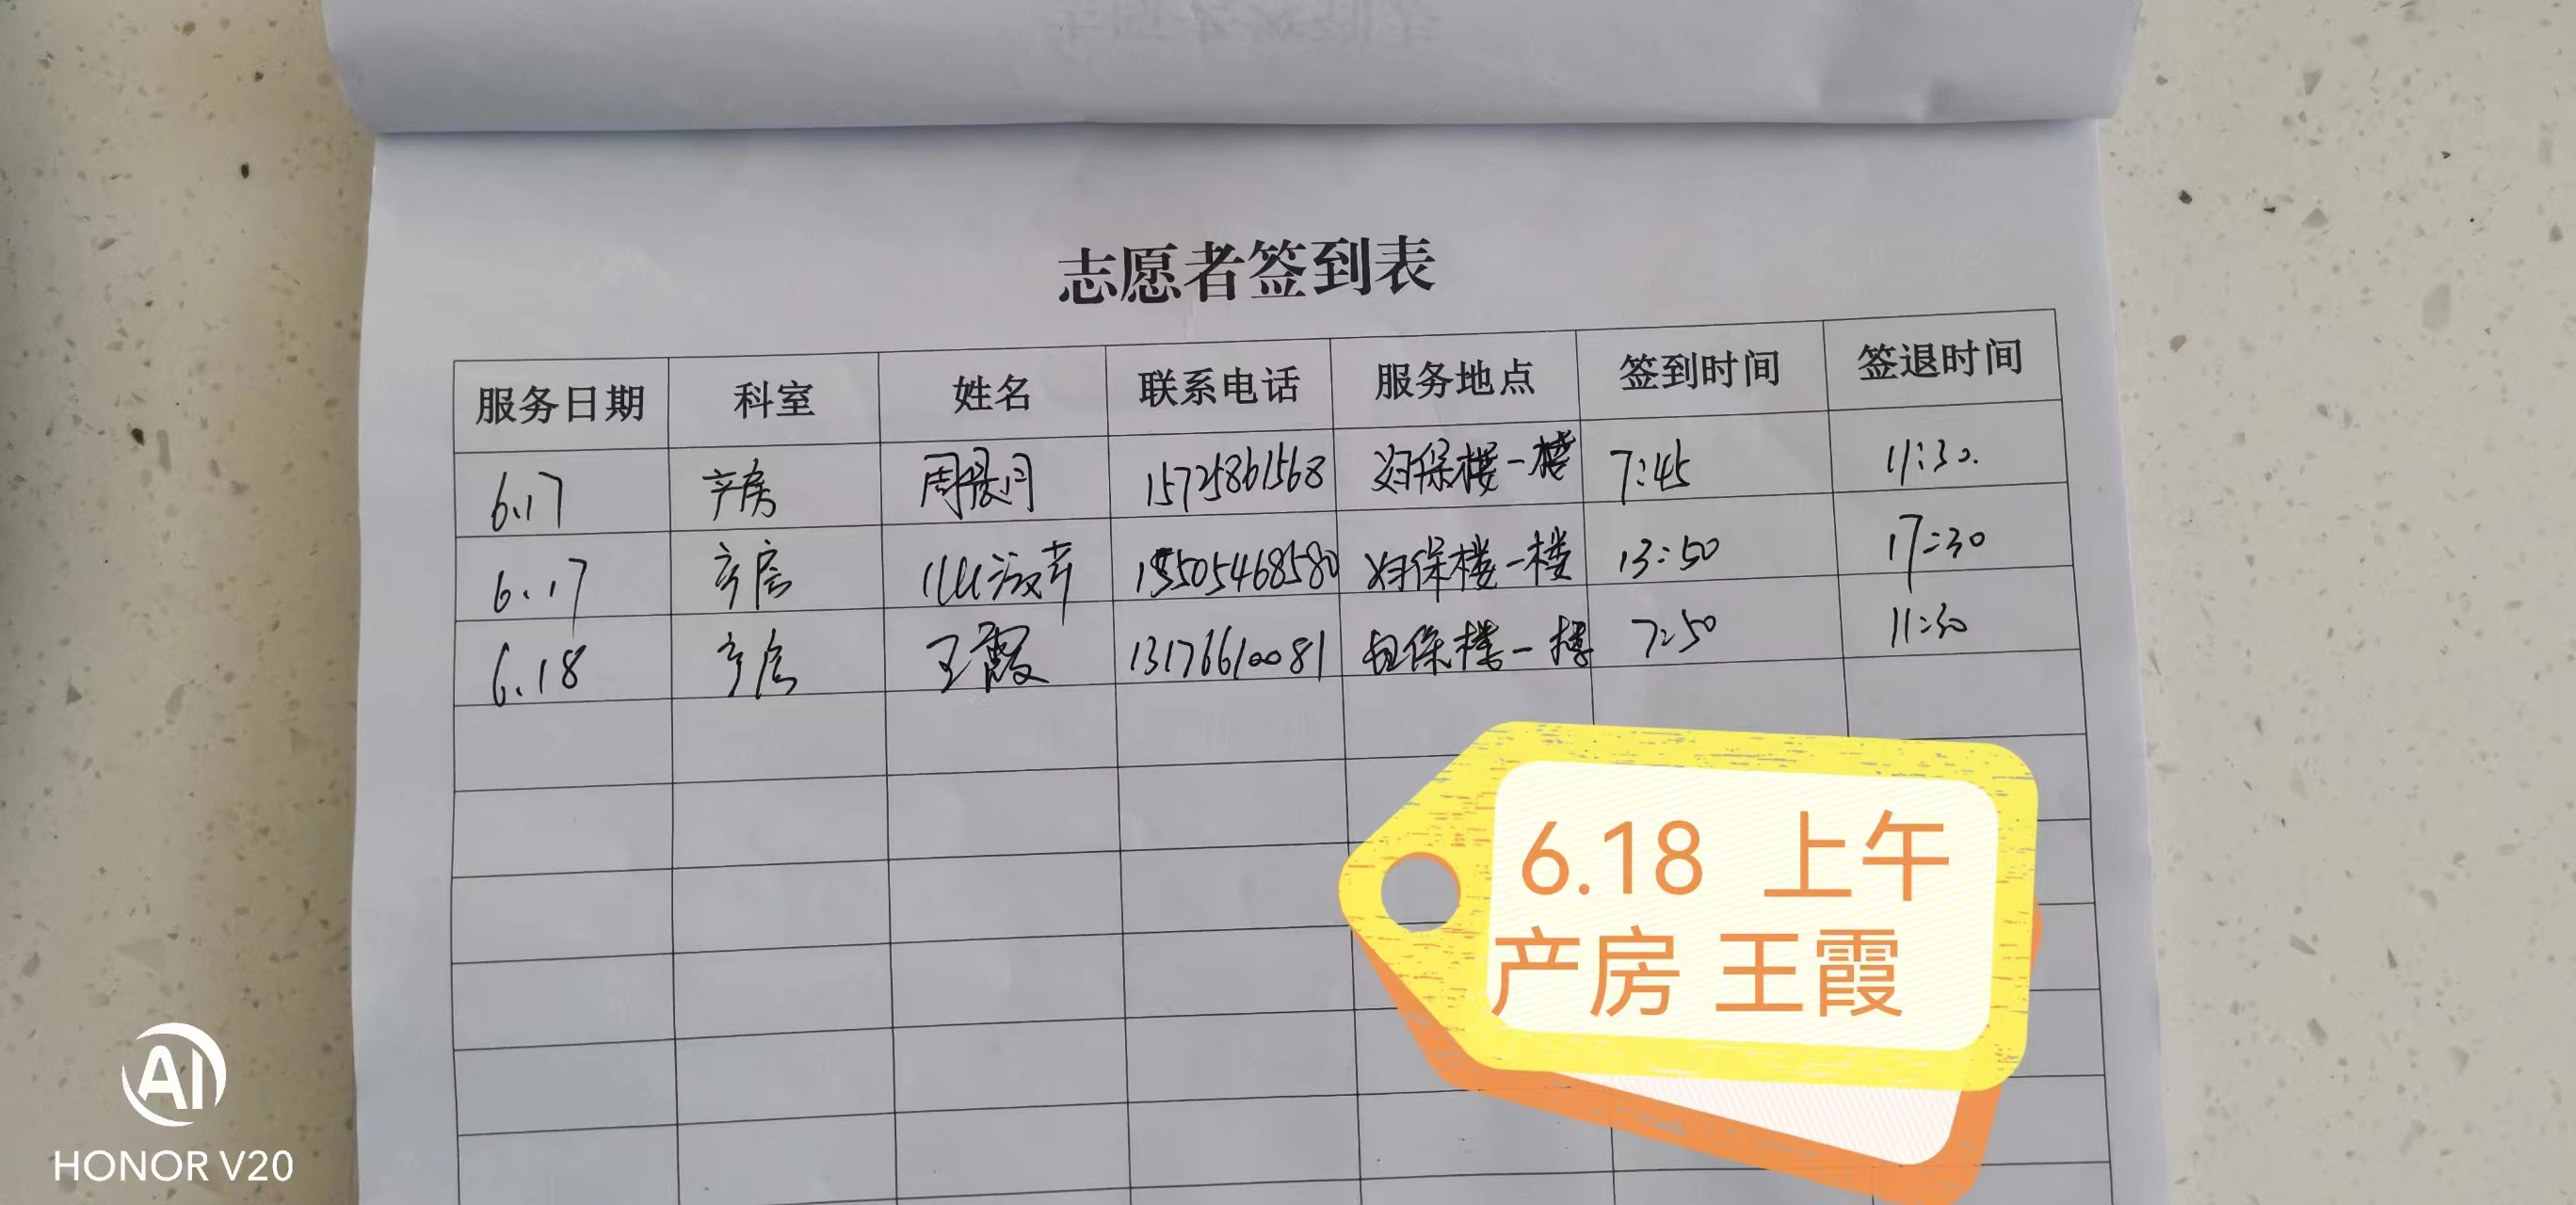 志愿者签到表
服务日期 科室 姓名 联系电话 服务地点 签到时间 签退时间
6.17 产房 周晨月 15725861568 妇保楼一楼 7:45 11:30.
6.17 产房 15505468580 妇保楼一楼 13:50 17:30
6.18 产房 王霞 13176610081 妇保楼一楼 7:50 11:30
6.18 上午
产房 王霞
AI
HONOR V20